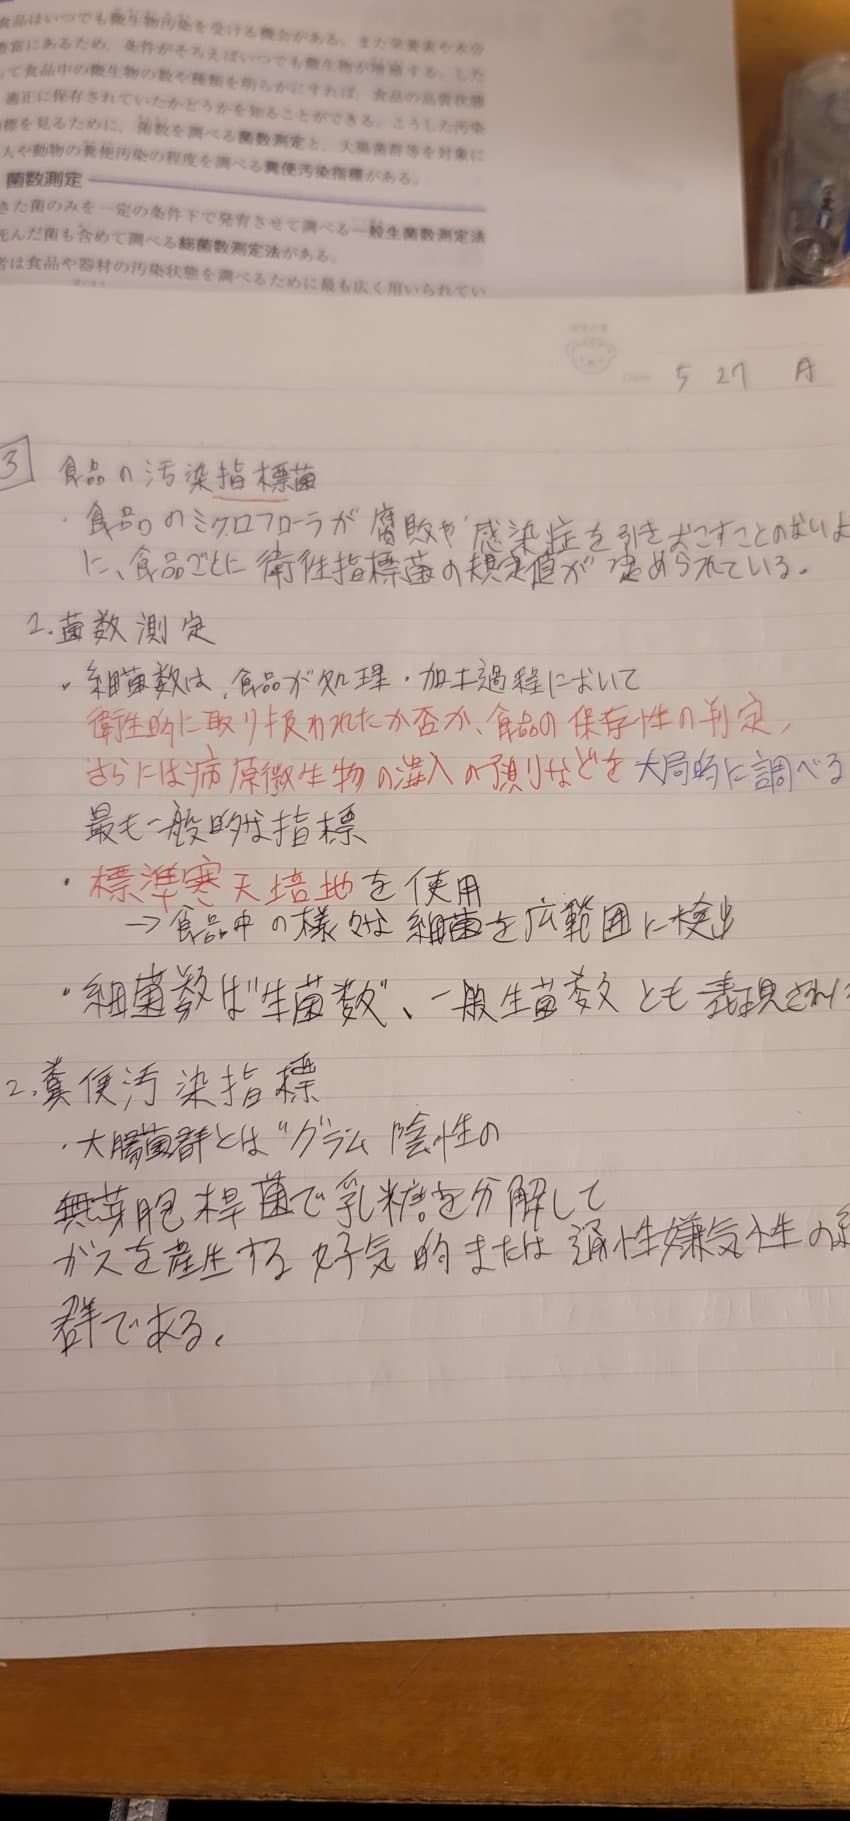 食品はいつでも微生物汚染を受ける機会がある。また栄養素や水分
豊富にあるため、条件がそろえばいつでも微生物が増殖する。した
って食品中の微生物の数や種類を明らかにすれば、食品の品質状態
適正に保存されていたかどうかを知ることができる。こうした汚染
標を見るために、菌数を調べる菌数測定と、大腸菌群等を対象に
人や動物の糞便汚染の程度を調べる糞便汚染指標がある。
菌数測定
きた菌のみを一定の条件下で発育させて調べる一般生菌数測定法
死んだ菌も含めて調べる総菌数測定法がある。
者は食品や器材の汚染状態を調べるために最も広く用いられてい
5 27 月
3 食品の汚染指標菌
・食品のミクロフローラが腐敗や感染症を引き起こすことのないよ
に、食品ごとに衛生指標菌の規定値が定められている。
1.菌数測定
・細菌数は、食品が処理・加工過程において
衛生的に取り扱われたか否か、食品の保存性の判定、
さらには病原微生物の混入の預りなどを大局的に調べる
最も一般的な指標
・標準寒天培地を使用
→食品中の様々な細菌を広範囲に検出
・細菌数は"生菌数"、一般生菌数とも表現され
2.糞便汚染指標
・大腸菌群とは"グラム陰性の
無芽胞桿菌で乳糖を分解して
ガスを産生する好気的または通性嫌気性の
群である。